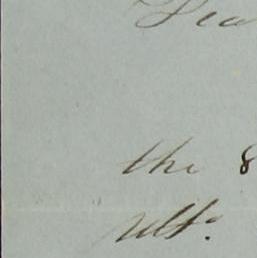 Dea
the 8
ulto.